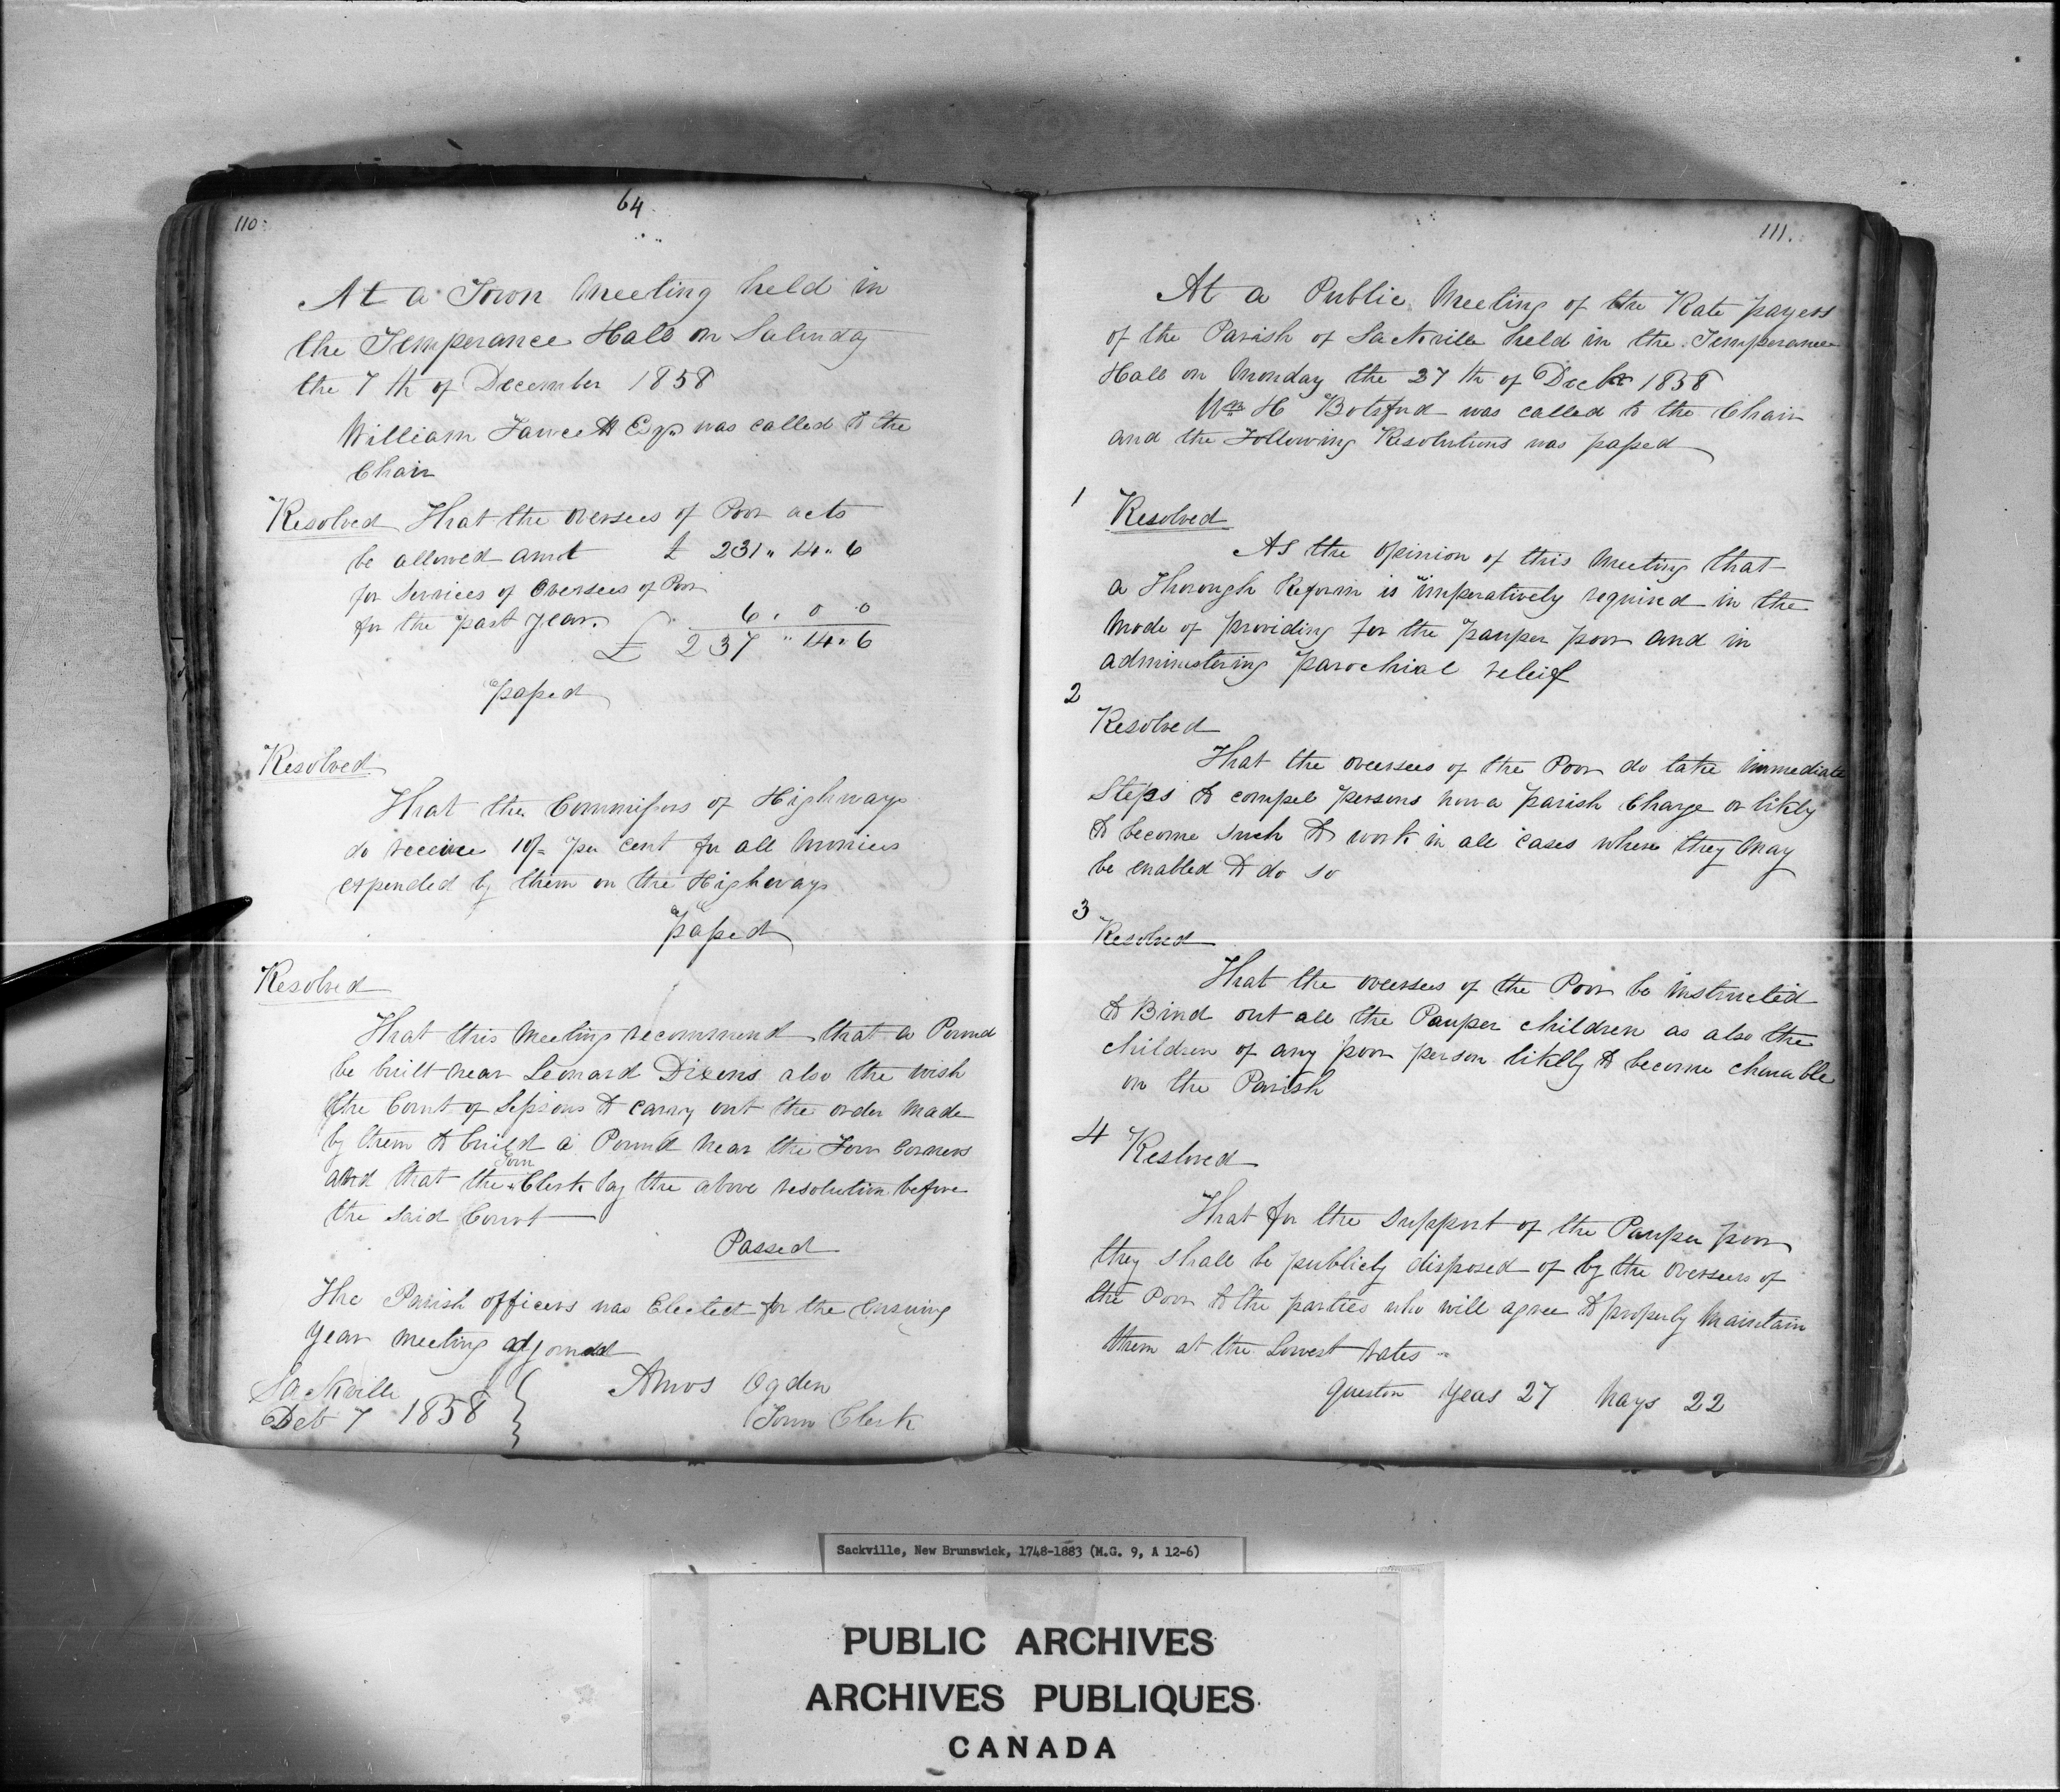 110.
64
At a Town Meeting held in
the Temperance Hall on
the 7th of December 1858
William Fawcett Esqr was called to the
Chair
Resolved That the oversees of Poor acts
be allowed amt £ 231 " 14 " 6
for Services of Oversees of Poor
for the past year. 6 . 0 0
£ 237 " 14 " 6
passed
Resolved
That the Commissors of Highways
do receive 10/- per cent for all monies
expended by them on the Highways
passed
Resolved
That this Meeting recommend that a Pound
be built near Leonard Dixons also the wish
the Court of Sessions to carry out the order made
by them to build a Pound near the Four Corners
and that the Town Clerk lay the above resolution before
the said Court
Passed
The Parish officers was Elected for the Ensuing
year meeting
Sackville
7 1858
Amos Ogden
Town Clerk
111.
At a Public Meeting of the Rate payers
of the Parish of Sackville held in the Temperance
Hall on Monday the 27th of Decbr 1858
Wm H Botsford was called to the Chair
and the Following Resolutions was passed
1
Resolved
As the opinion of this Meeting that
a Thorough Reform is imperatively required in the
Mode of providing for the pauper poor and in
administering parochial releif
2
Resolved
That the oversees of the Poor do take immediate
Steps to compel persons now a parish Charge or likly
to become such to work in all cases where they may
be enabled to do so
3
Resolved
That the oversees of the Poor be instructed
to Bind out all the Pauper children as also the
children of any poor person likly to become
on the Parish
4
Reslved
That for the support of the Pauper poor
they shall be publicly disposed of by the overseers of
the Poor to the parties who will agree to properly maintain
them at the Lowest rates
yeas 27 Nays 22
Sackville, New Brunswick, 1748-1883 (M.G. 9, A 12-6)
PUBLIC ARCHIVES
ARCHIVES PUBLIQUES
CANADA